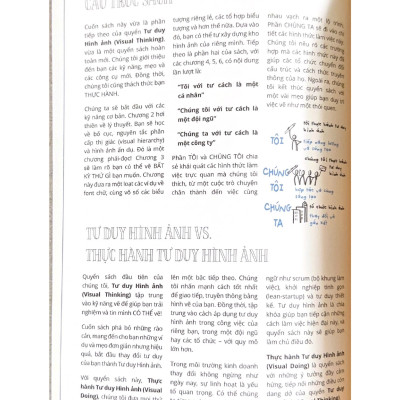 CẤU TRÚC SÁCH
Cuốn sách này vừa là phần
tiếp theo của quyển Tư Duy
Hình ảnh (Visual Thinking),
vừa là một quyển sách hoàn
toàn mới. Chúng tôi giới thiệu
đến bạn các kỹ năng, mẹo và
các công cụ mới. Đồng thời,
chúng tôi cũng thách thức bạn
THỰC HÀNH.
Chúng ta sẽ bắt đầu với các
kỹ năng cơ bản. Chương 2 hơi
thiên về lý thuyết. Bạn sẽ học
về bố cục, nguyên tắc phân
cấp thị giác (visual hierarchy)
và hình ảnh ẩn dụ. Đó là một
chương phải-đọc! Chương 3
sẽ làm rõ bạn có thể vẽ BẤT
KỲ THỨ GÌ bạn muốn. Chương
này đưa ra một loạt các ví dụ về
font chữ, cùng vô số các biểu
tượng riêng lẻ, các tổ hợp biểu
tượng và hơn thế nữa. Dựa vào
đó, bạn có thể tự xây dựng kho
hình ảnh của riêng mình. Tiếp
theo là phần hai của sách, với
các chương 4, 5, 6, có nội dung
lần lượt là:
"Tôi với tư cách là một
cá nhân"
"Chúng tôi với tư cách là
một đội ngũ"
"Chúng ta với tư cách là
một công ty"
PHẦN TÔI và CHÚNG TÔI chia
sẻ khái quát các hình thức làm
việc trực quan mà chúng tôi
thích, từ một cuộc trò chuyện
chân thành đến việc cùng
nhau vạch ra một lộ trình.
Phần CHÚNG TA sẽ đi vào chi
tiết các hình thức làm việc này.
TÔI
CHÚNG
TÔI
CHÚNG
TA
TƯ DUY HÌNH ẢNH VS.
THỰC HÀNH TƯ DUY HÌNH ẢNH
Quyển sách đầu tiên của
chúng tôi, Tư duy Hình ảnh
(Visual Thinking) tập trung
vào kỹ năng vẽ để giúp bạn trải
nghiệm và tin mình CÓ THỂ vẽ!
Cuốn sách phá bỏ những rào
cản, mang đến cho bạn những ví
dụ và mẹo đơn giản nhưng hiệu
quả, bắt đầu thay đổi tư duy
của bạn thành Tư duy Hình ảnh.
Với quyển sách này, Thực
hành Tư duy Hình ảnh (Visual
Doing), chúng tôi muốn đưa
lên một bậc tiếp theo. Chúng tôi
nhấn mạnh cách tốt nhất
để giao tiếp, truyền thông bằng
hình vẽ của bạn. Đồng thời, tập
trung vào cách áp dụng tư duy
hình ảnh trong công việc của
riêng bạn, trong một đội ngũ
hay các tổ chức – với quy mô
lớn hơn.
Trong môi trường kinh doanh
thay đổi không ngừng như
ngày nay, sự linh hoạt là yếu
tố quan trọng. Chúng tôi
ngữ như scrum (bộ khung làm
việc), khởi nghiệp tinh gọn
(lean-startup) và tư duy thiết
kế. Tư duy hình ảnh là chìa
khóa giúp bạn tiếp cận những
cách làm việc hiện đại này, và
quyển sách này sẽ giúp bạn
làm chủ điều đó.
Thực hành Tư duy Hình ảnh
(Visual Doing) là quyển sách
với những ý tưởng đầy cảm
hứng, tiếp nối những điều còn
dang dở của quyển Tư duy